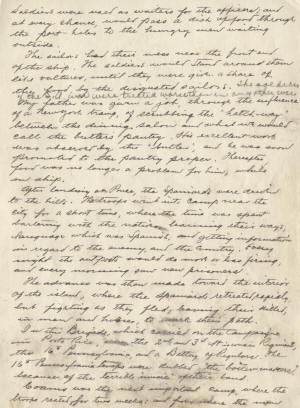 Soldiers were used as waiters for the officers; and
at every chance, would pass a dish up front through
the port-holes to the hungry men waiting
outside.
The sailors had their mess near the front end
of the ship. The soldiers would stand around them
like vultures, until they were given a share of
the food by the disgusted sailors.
My father was given a job, through the influence
of a New York of scrubbing the hall-way
between the dining salon and what we would
call the butlers pantry. His excellent work
was observed by the "butler", and he was soon
promoted to the pantry proper. Thereafter
food was no longer a problem for him, while
on ship.
After landing in Ponce, the Spaniards were
to the hills. The troops went into camp near the
city for a short time, where the time was spent
with the natives learning their ways,
language which was Spanish, and getting information
in regard to the enemy and the country. Every
night the outposts would do more or less firing,
and every morning saw new prisoners.
The advance was then made toward the interior
of the island, where the Spaniards retreated rapidly,
but fighting as they fled, leaving their killed,
in men and horses, to mark their path.
In this Brigade, which carried on the campaign
in Porto Rico, were the 2nd and 3rd Wisconsin Regiments,
the 16th Pennsylvania, and a Battery of Regulars. The
16th Pennsylvania troops were dubbed the "boiler makers"
because of the terrific music of their band.
Coamo was the next important camp, where the
troops rested for two weeks; and from where the men